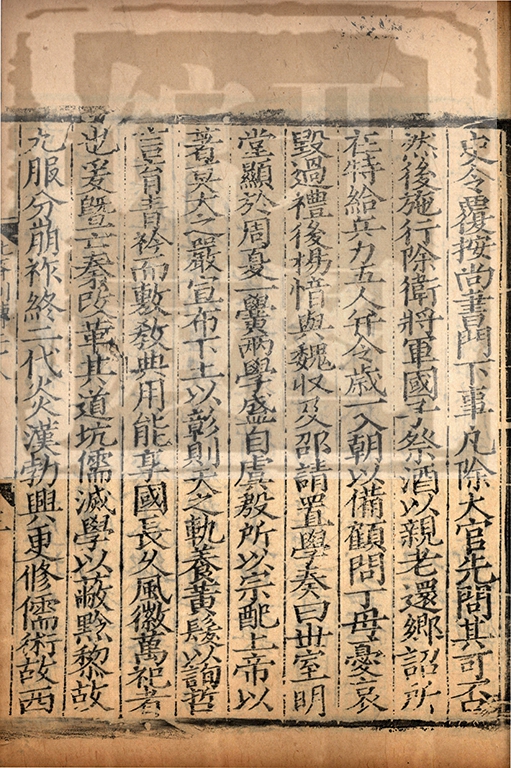 史令覆按尚書門下事凡除大官先問其可否
然後施行除衛將軍國子祭酒以親老還鄉詔所
在特給兵力五人并令歲一入朝以備顧問丁母憂哀
毀過禮後楊愔與魏收及邵請置學奏曰世室明
堂顯於周夏一黌兩學盛自虞殷所以宗配上帝以
著莫大之嚴宣布下土以彰則天之軌養黃髮以詢哲
言育青衿而敷教典用能享國長久風徽萬祀者
也爰暨亡秦改革其道坑儒滅學以蔽黔黎故
九服分崩祚終二代炎漢勃興更修儒術故西